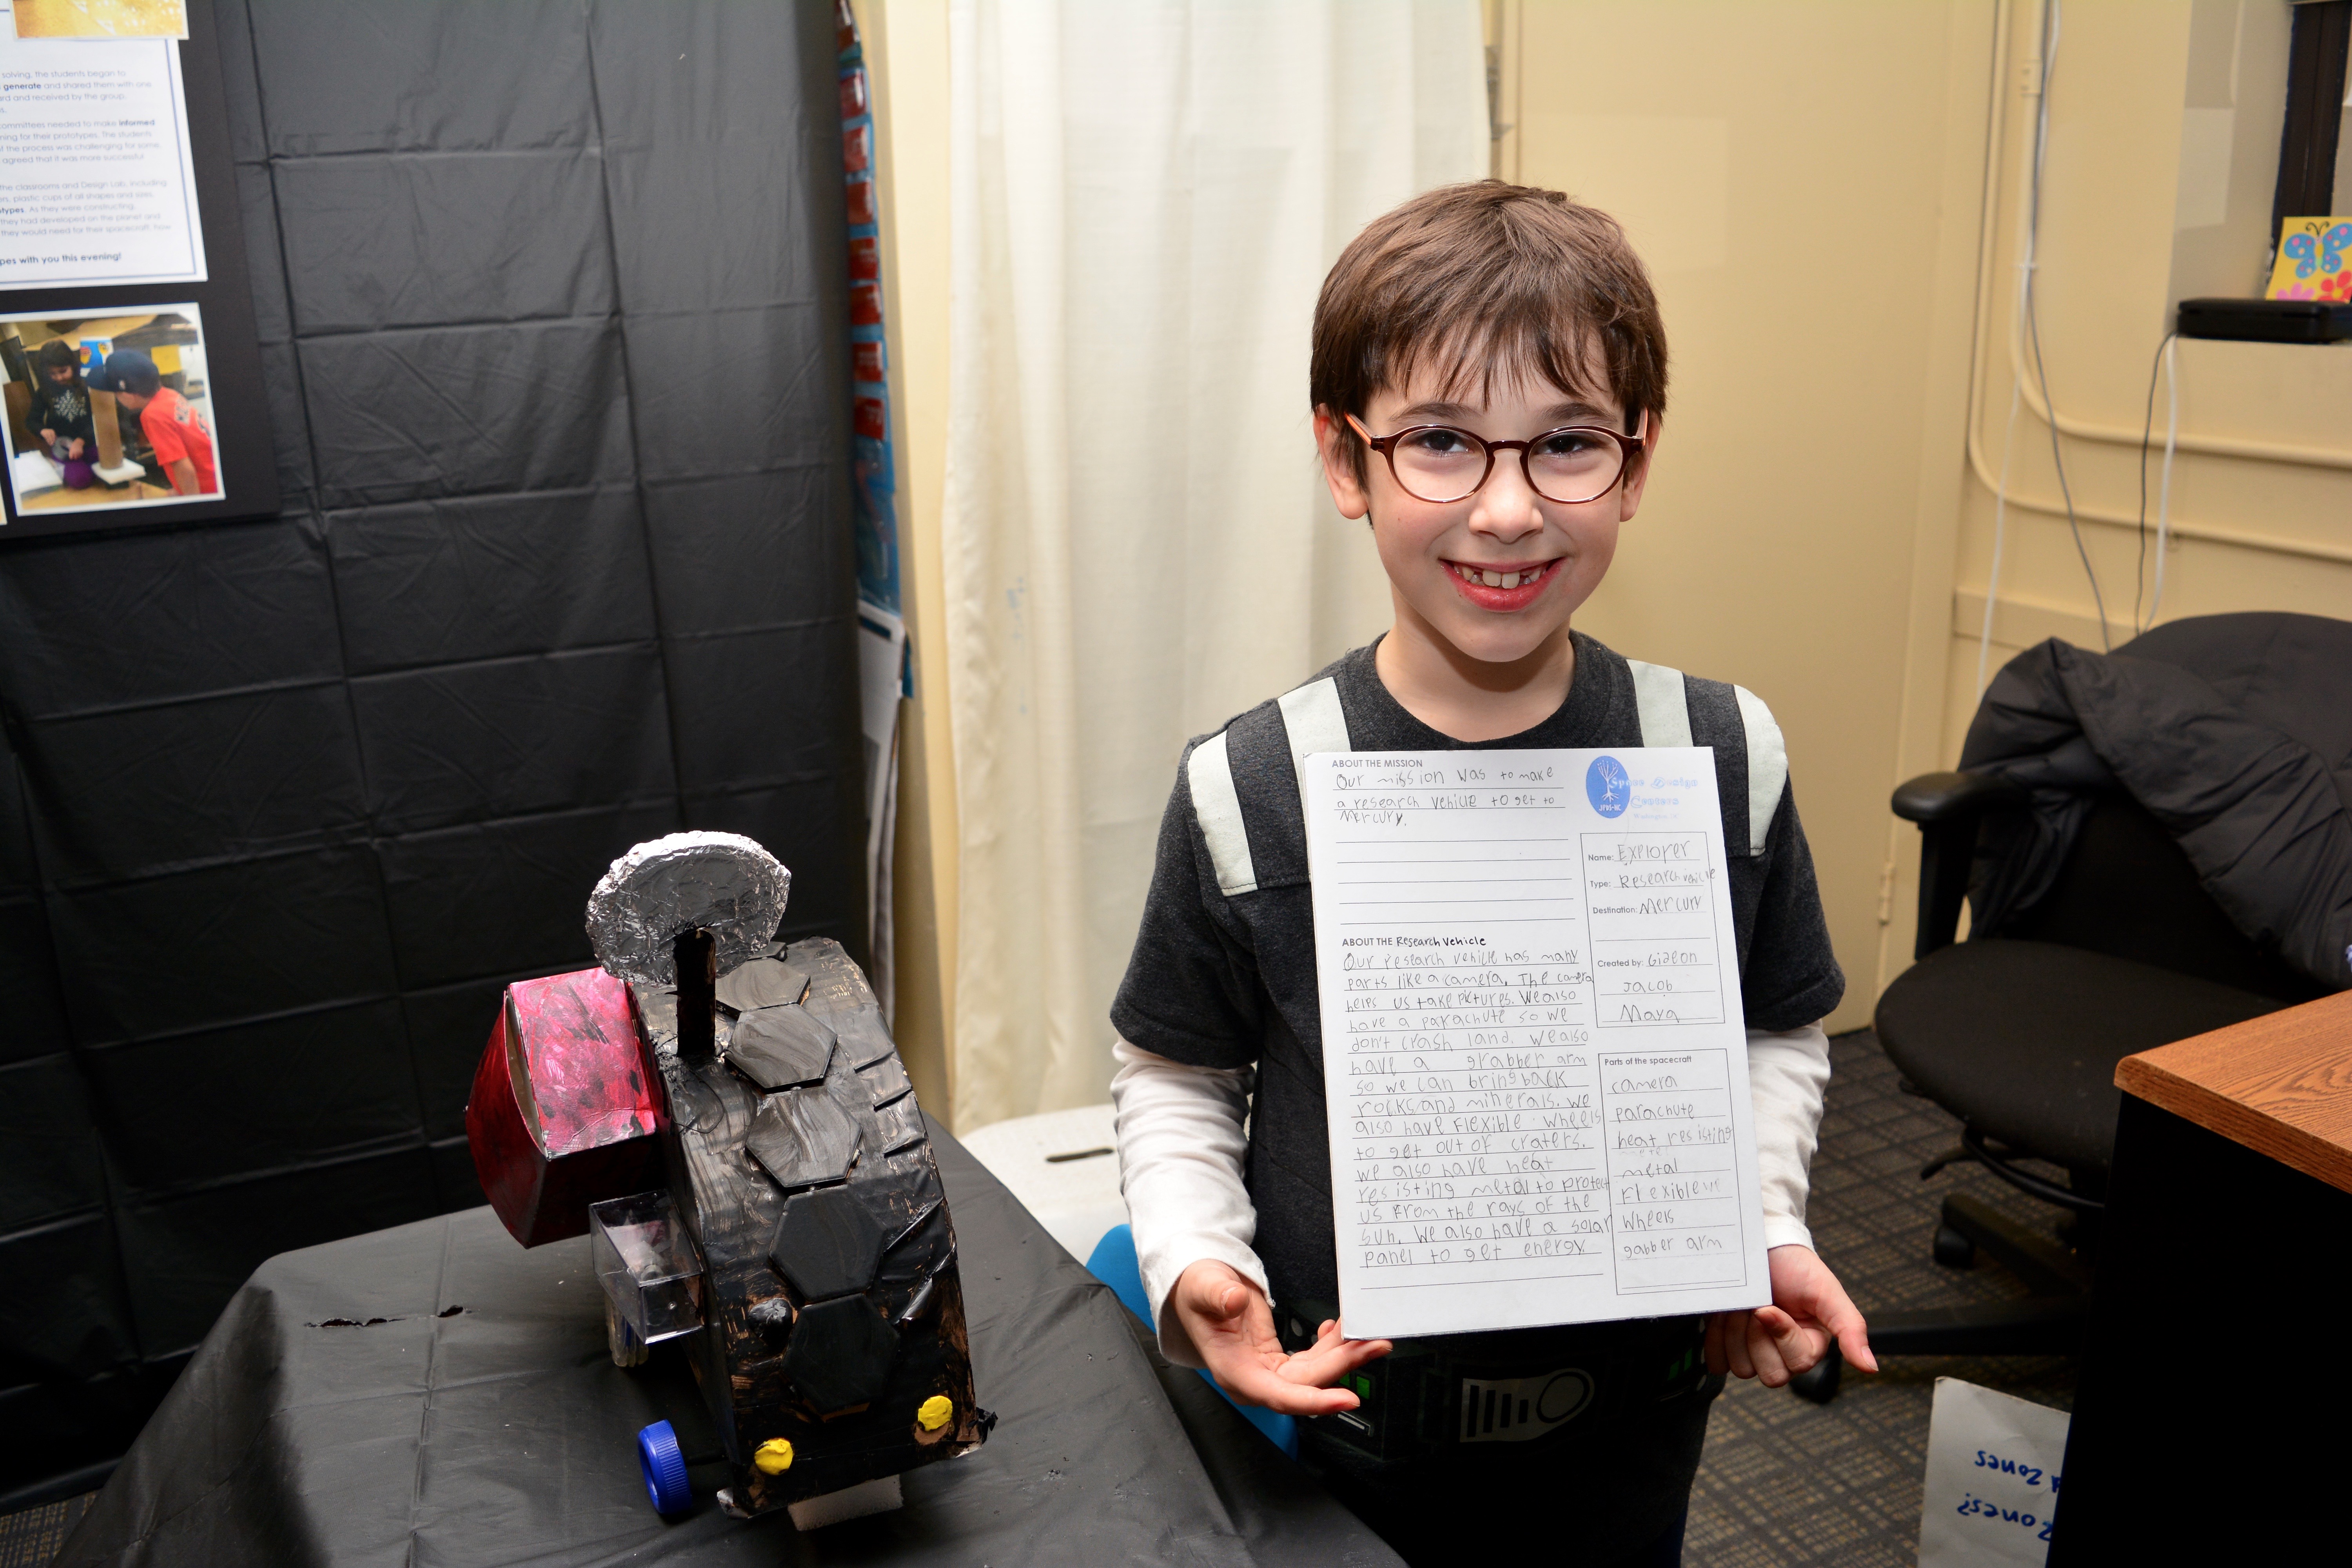 solving, the students began to
generate and shared them with one
rd and received by the group.
s.
committees needed to make informed
ning for their prototypes. The students
t the process was challenging for some,
agreed that it was more successful
the classrooms and Design Lab, including
rs, plastic cups of all shapes and sizes,
types. As they were constructing,
they had developed on the planet and
they would need for their spacecraft, how
pes with you this evening!
ABOUT THE MISSION
Our mission was to make
a research vehicle to get to
Mercury.
Space Design
Centers
Name: Explorer
Type: Research vehicle
Destination: Mercury
Created by: Gideon
Jacob
Maya
ABOUT THE Research Vehicle
Our research vehicle has many
parts like a camera. The camera
helps us take pictures. We also
have a parachute so we
don't crash land. We also
have a grabber arm
so we can bring back
rocks and minerals. We
also have flexible wheels
to get out of craters.
We also have heat
resisting metal to protect
us from the rays of the
sun. We also have a solar
panel to get energy.
Parts of the spacecraft
camera
parachute
heat resisting
metal
Flexible
wheels
gabber arm
Zones
Zones?